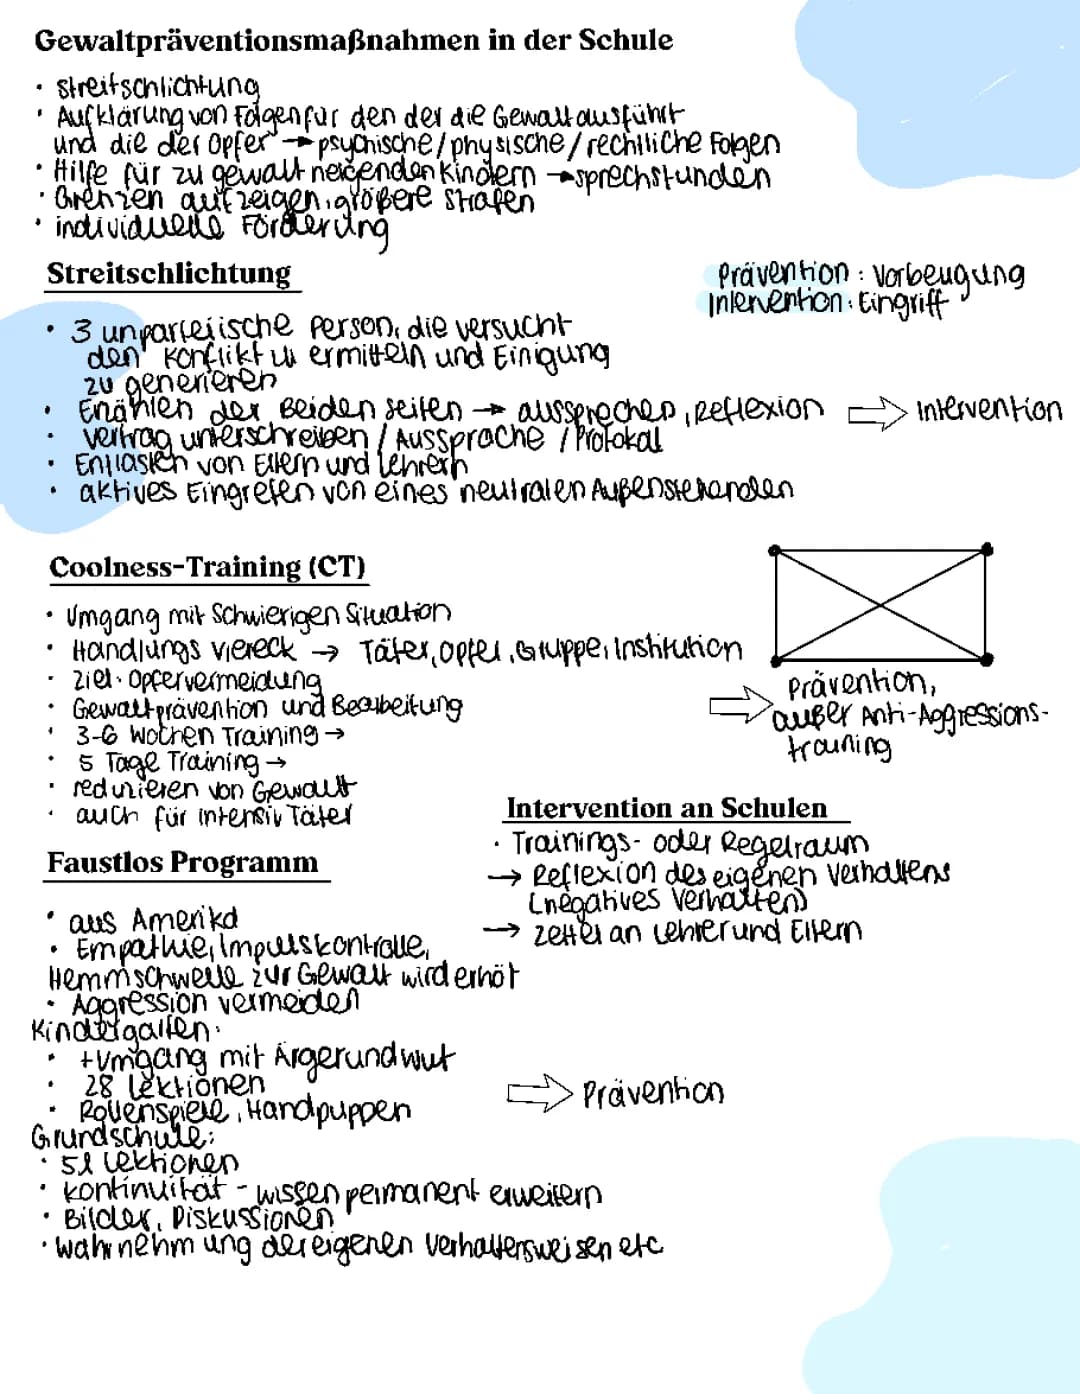 Gewaltpräventionsmaßnahmen in der Schule
• Streitschlichtung
• Aufklärung von Folgen für den der die Gewalt ausführt
und die der Opfer → psychische/physische/rechtliche Folgen
• Hilfe für zu gewalt neigenden Kindern → sprechstunden
• Grenzen aufzeigen, größere Strafen
• individuelle Förderung
Streitschlichtung
Prävention: Vorbeugung
Intervention: Eingriff
• 3 unparteiische Person, die versucht
den Konflikt zu ermitteln und Einigung
zu generieren
• Erzählen der Beiden seiten → aussprechen, Reflexion ⇒ Intervention
• Vertrag unterschreiben / Aussprache / Protokal
• Entlasten von Eltern und Lehrern
• aktives Eingrefen von eines neutralen Außenstehenden
Coolness-Training (CT)
• Umgang mit Schwierigen Situation
• Handlungs viereck → Täter, Opfer, Gruppe, Institution
• Ziel: Opfervermeidung
• Gewaltprävention und Bearbeitung
• 3-6 Wochen Training →
• 5 Tage Training →
• reduzieren von Gewalt
• auch für intensiv Täter
⇒ Prävention,
außer Anti-Aggressions-
training
Intervention an Schulen
• Trainings- oder Regelraum
→ Reflexion des eigenen Verhaltens
(negatives Verhalten)
→ Zettel an Lehrer und Eltern
Faustlos Programm
• aus Amerika
• Empathie, Impulskontrolle,
Hemmschwelle zur Gewalt wird erhöt
• Aggression vermeiden
Kindergarten:
• +Umgang mit Ärger und wut
• 28 Lektionen
• Rollenspiele, Handpuppen
⇒ Prävention
Grundschule:
• 51 Lektionen
• kontinuität - wissen permanent erweitern
• Bilder, Diskussionen
• wahrnehmung der eigenen Verhaltensweisen etc